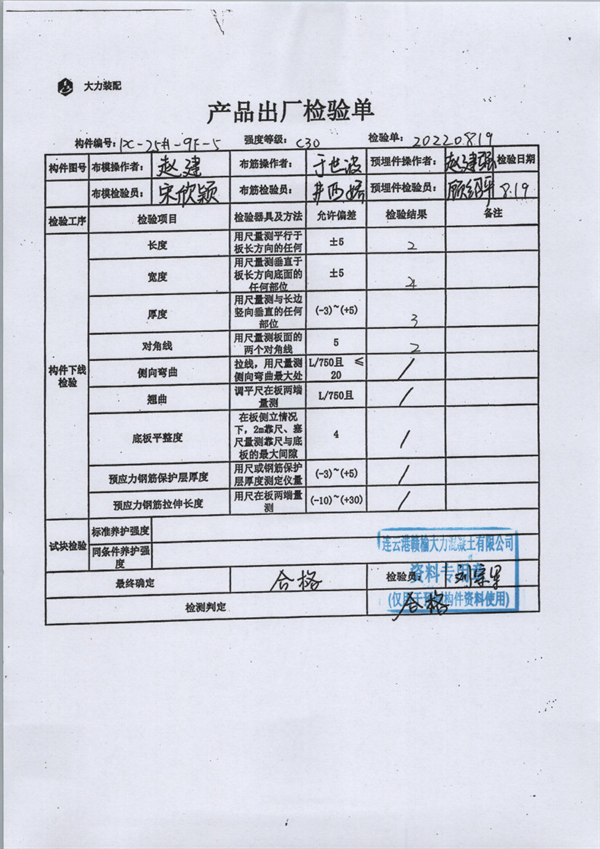 大力装配
产品出厂检验单
构件编号: PC-25#-9F-5 强度等级: C30 检验单: 20220819
构件图号 布模操作者: 赵建 布筋操作者: 于世波 预埋件操作者: 赵建强 检验日期
布模检验员: 宋欣颖 布筋检验员: 预埋件检验员: 8.19
检验工序 检验项目 检验器具及方法 允许偏差 检验结果 备注
构件下线检验
长度 用尺量测平行于板长方向的任何 ±5 2
宽度 用尺量测垂直于板长方向底面的任何部位 ±5
厚度 用尺量测与长边竖向垂直的任何部位 (-3)~(+5) 3
对角线 用尺量测板面的两个对角线 5 2
侧向弯曲 拉线，用尺量测侧向弯曲最大处 L/750且 ≤20 /
翘曲 调平尺在板两端量测 L/750且 /
底板平整度 在板侧立情况下，2m靠尺、塞尺量测靠尺与底板的最大间隙 4 /
预应力钢筋保护层厚度 用尺或钢筋保护层厚度测定仪量 (-3)~(+5) /
预应力钢筋拉伸长度 用尺在板两端量测 (-10)~(+30) /
试块检验 标准养护强度
同条件养护强度
最终确定 合格 检验员
检测判定 合格
连云港赣榆大力混凝土有限公司
资料专用章
(仅用于预制构件资料使用)